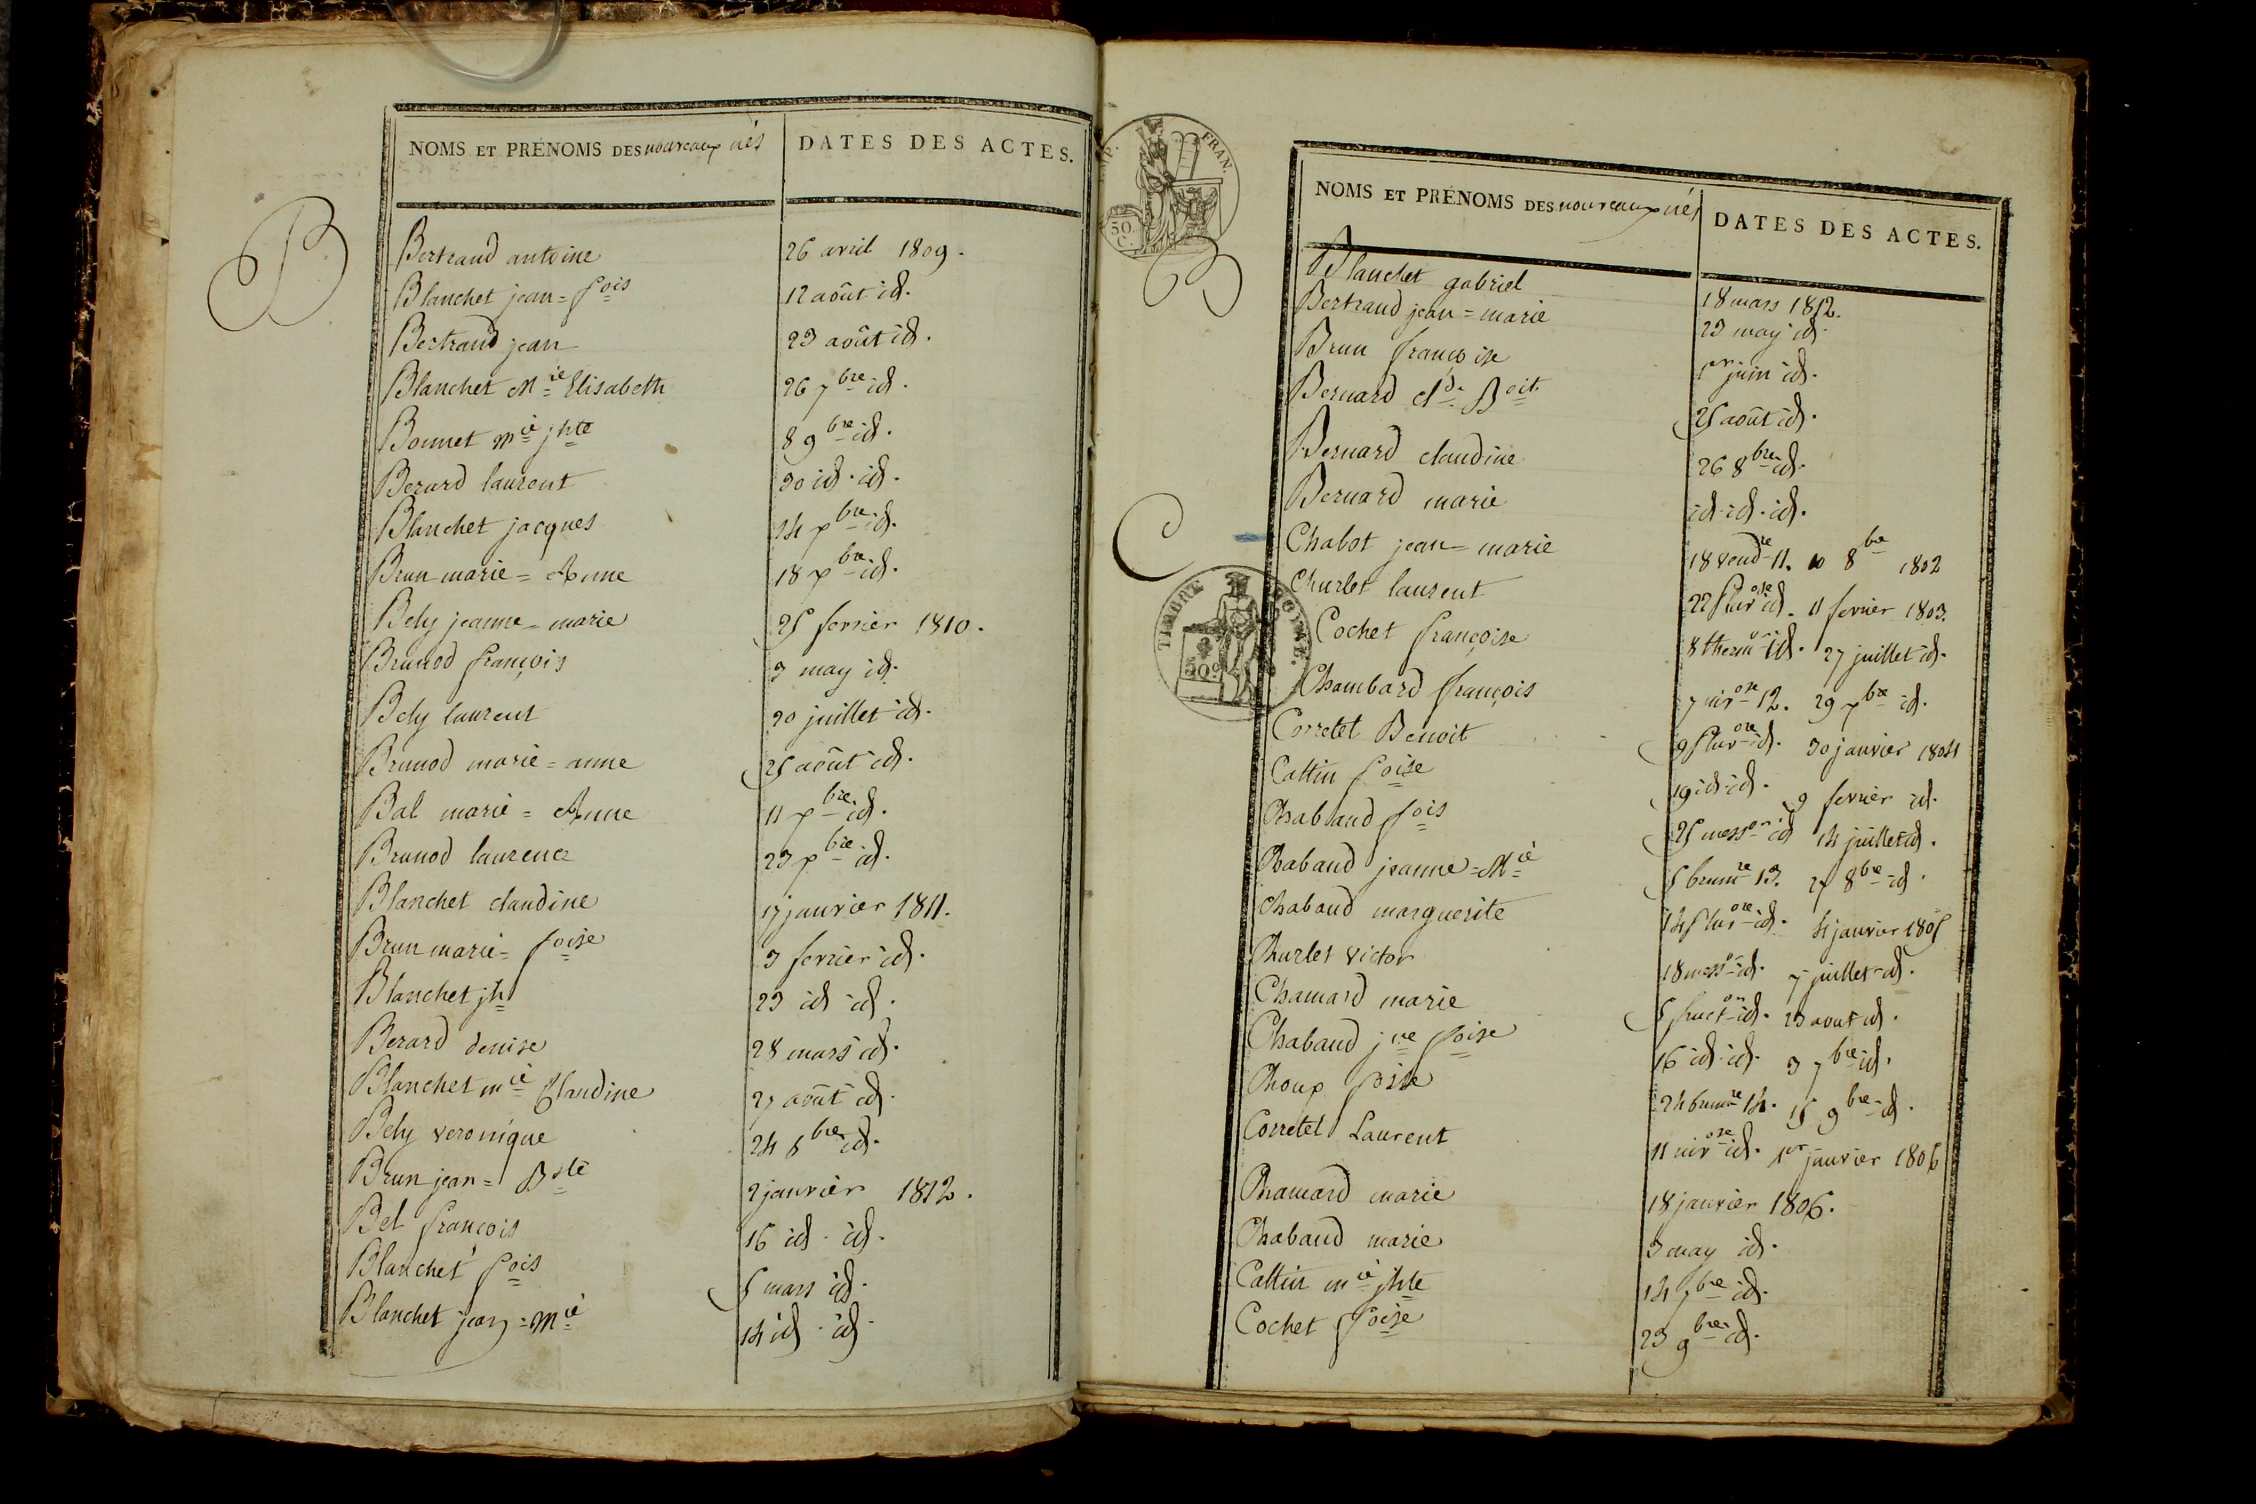 NOMS ET PRÉNOMS DES nouveaux nés
DATES DES ACTES.
B
Bertrand antoine 26 avril 1809.
Blanchet jean = fois 12 août id.
Bertrand jean 23 août id.
Blanchet Mie Elisabeth 26 7bre id.
Bonnet mie jhte 8 9bre id.
Berard laurent 30 id. id.
Blanchet jacques 14 xbre id.
Brun marie = Anne 18 xbre id.
Bely jeanne = marie 25 fevrier 1810.
Brunod françois 3 may id.
Bely laurent 20 juillet id.
Brunod marie = anne 25 août id.
Bal marie = Anne 11 xbre id.
Brunod laurence 23 xbre id.
Blanchet claudine 17 janvier 1811.
Brun marie = foise 3 fevrier id.
Blanchet jh 23 id id.
Berard denise 28 mars id.
Blanchet mie Claudine 27 août id.
Bely veronique 24 8bre id.
Brun jean = Bte 2 janvier 1812.
Bel françois 16 id. id.
Blanchet fois 5 mars id.
Blanchet jean = Mie 14 id. id.
IMP. FRAN.
50 C.
NOMS ET PRÉNOMS DES nouveaux nés
DATES DES ACTES.
B
Blanchet gabriel 18 mars 1812.
Bertrand jean = marie 23 may id.
Brun françoise 1er juin id.
Bernard cld. Boit 25 août id.
Bernard claudine 26 8bre id.
Bernard marie id. id. id.
C
Chabot jean = marie 18 vendre 11. 10 8bre 1802
Churlet laurent 22 pluvose id. 11 fevrier 1803.
TIMBRE ROYAL.
50c
Cochet françoise 8 therm id. 27 juillet id.
Chambard françois 7 nivose 12. 29 xbre id.
Corretel Benoit 9 pluvose id. 30 janvier 1804
Cattin foise 19 id. id. 9 fevrier id.
Chabaud fois 25 messor id 14 juillet id.
Chabaud jeanne = Mie 5 brumre 13. 27 8bre id.
Chabaud marguerite 14 pluvose id. 4 janvier 1805
Churlet victor 18 messor id. 7 juillet id.
Chamard marie 5 fructor id. 23 aout id.
Chabaud jne foise 16 id. id. 3 7bre id.
Choux foise 24 brumre 14. 15 9bre id.
Corretel Laurent 11 nivose id. 1er janvier 1806
Chamard marie 18 janvier 1806.
Chabaud marie 3 may id.
Cattin mie jhte 14 7bre id.
Cochet foise 23 9bre id.